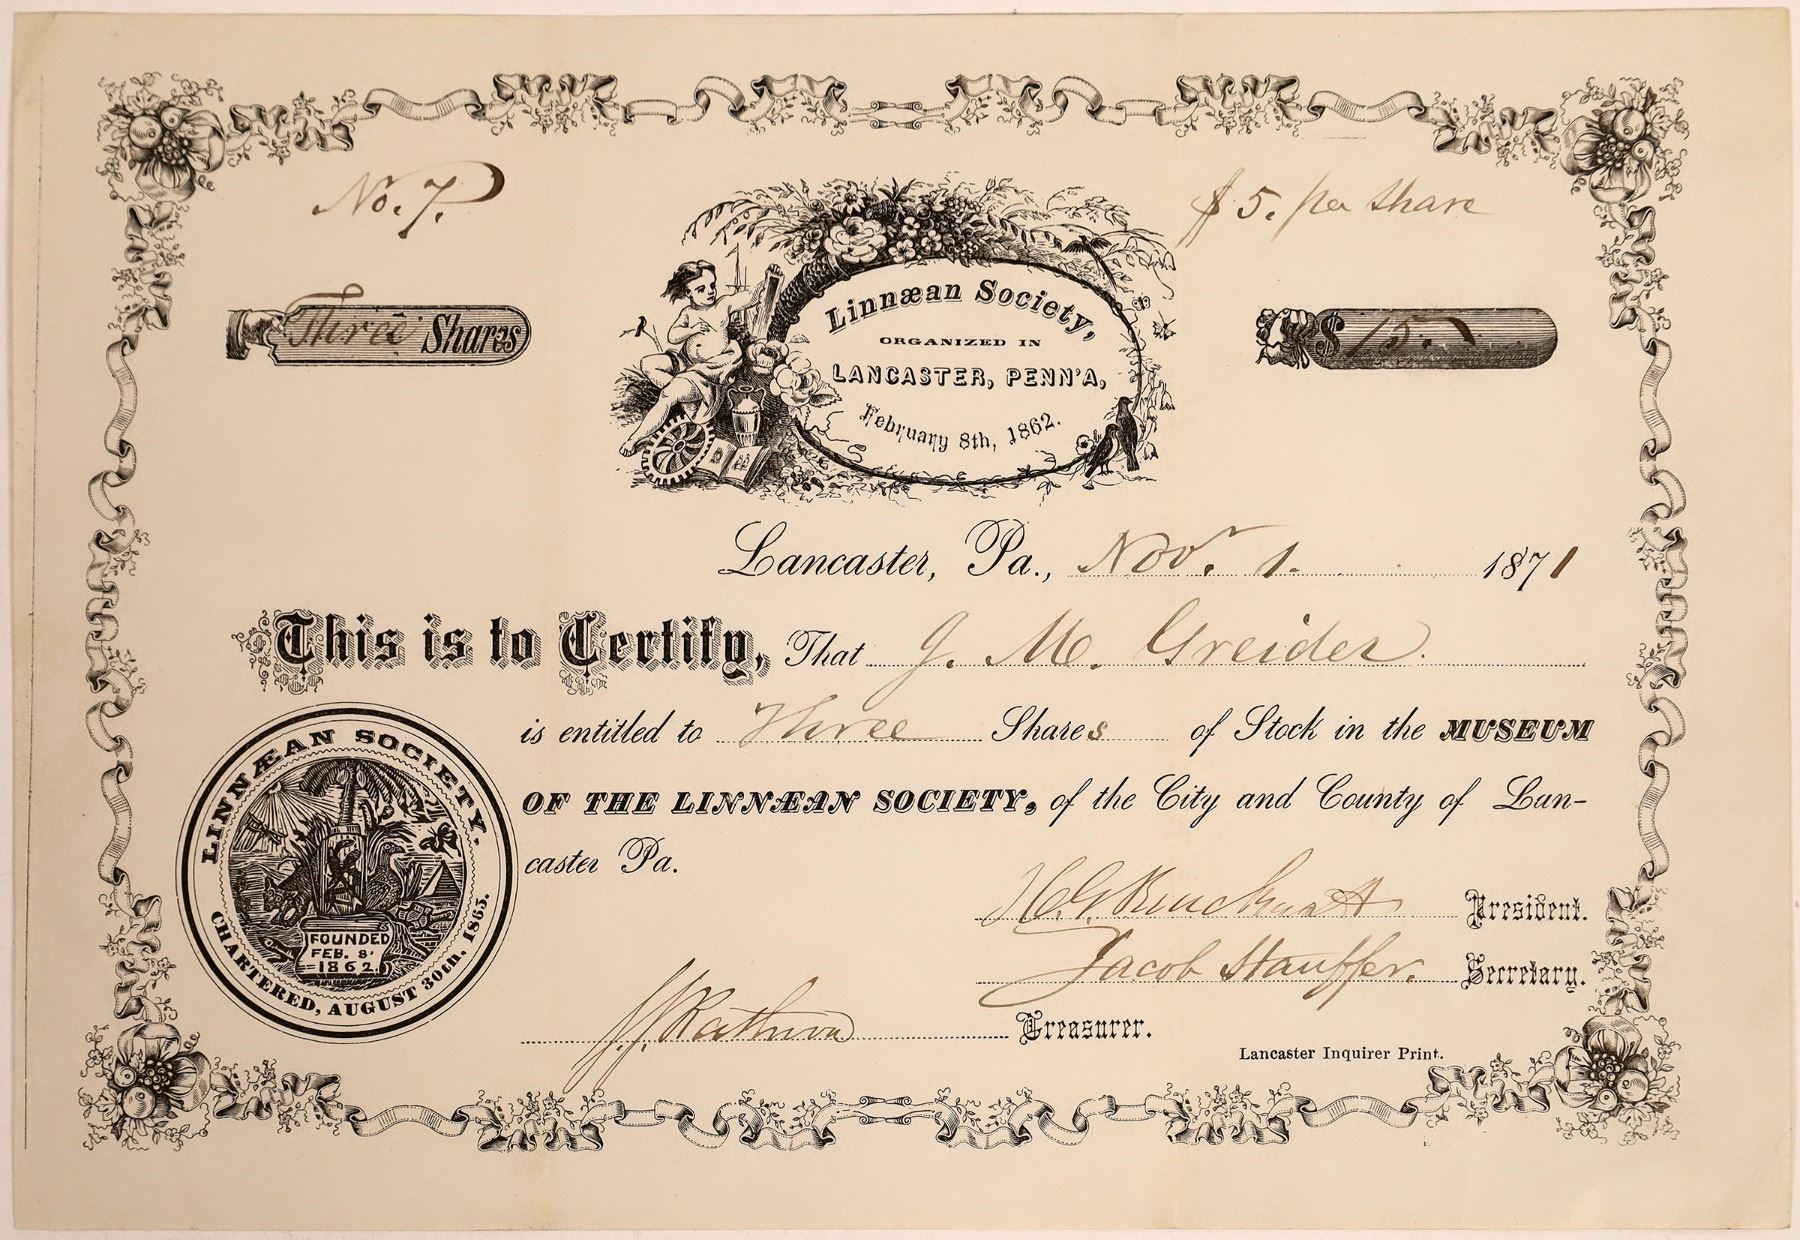 No. 7.
$5. per share
Three Shares
$15.
Linnæan Society,
ORGANIZED IN
LANCASTER, PENN'A,
February 8th, 1862.
Lancaster, Pa., Novr. 1. 1871
This is to Certify, That J. M. Greider.
is entitled to Three Shares of Stock in the MUSEUM
OF THE LINNÆAN SOCIETY, of the City and County of Lan-
caster Pa.
LINNÆAN SOCIETY.
CHARTERED, AUGUST 30th, 1865.
FOUNDED
FEB. 8,
1862.
President.
Jacob Stauffer. Secretary.
Rathvon Treasurer.
Lancaster Inquirer Print.